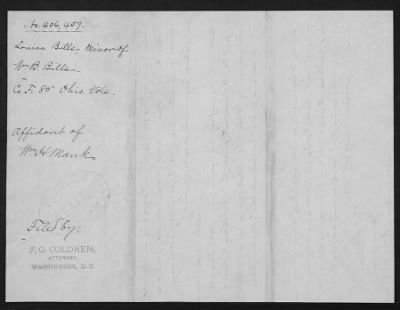 No. 406,459.
Louisa Bills, Minor of
Wm B. Bills.
Co. F. 80" Ohio Vols.
Affidavit of
Wm H. Mank
Filed by:
F. G. COLDREN,
ATTORNEY,
WASHINGTON, D. C.